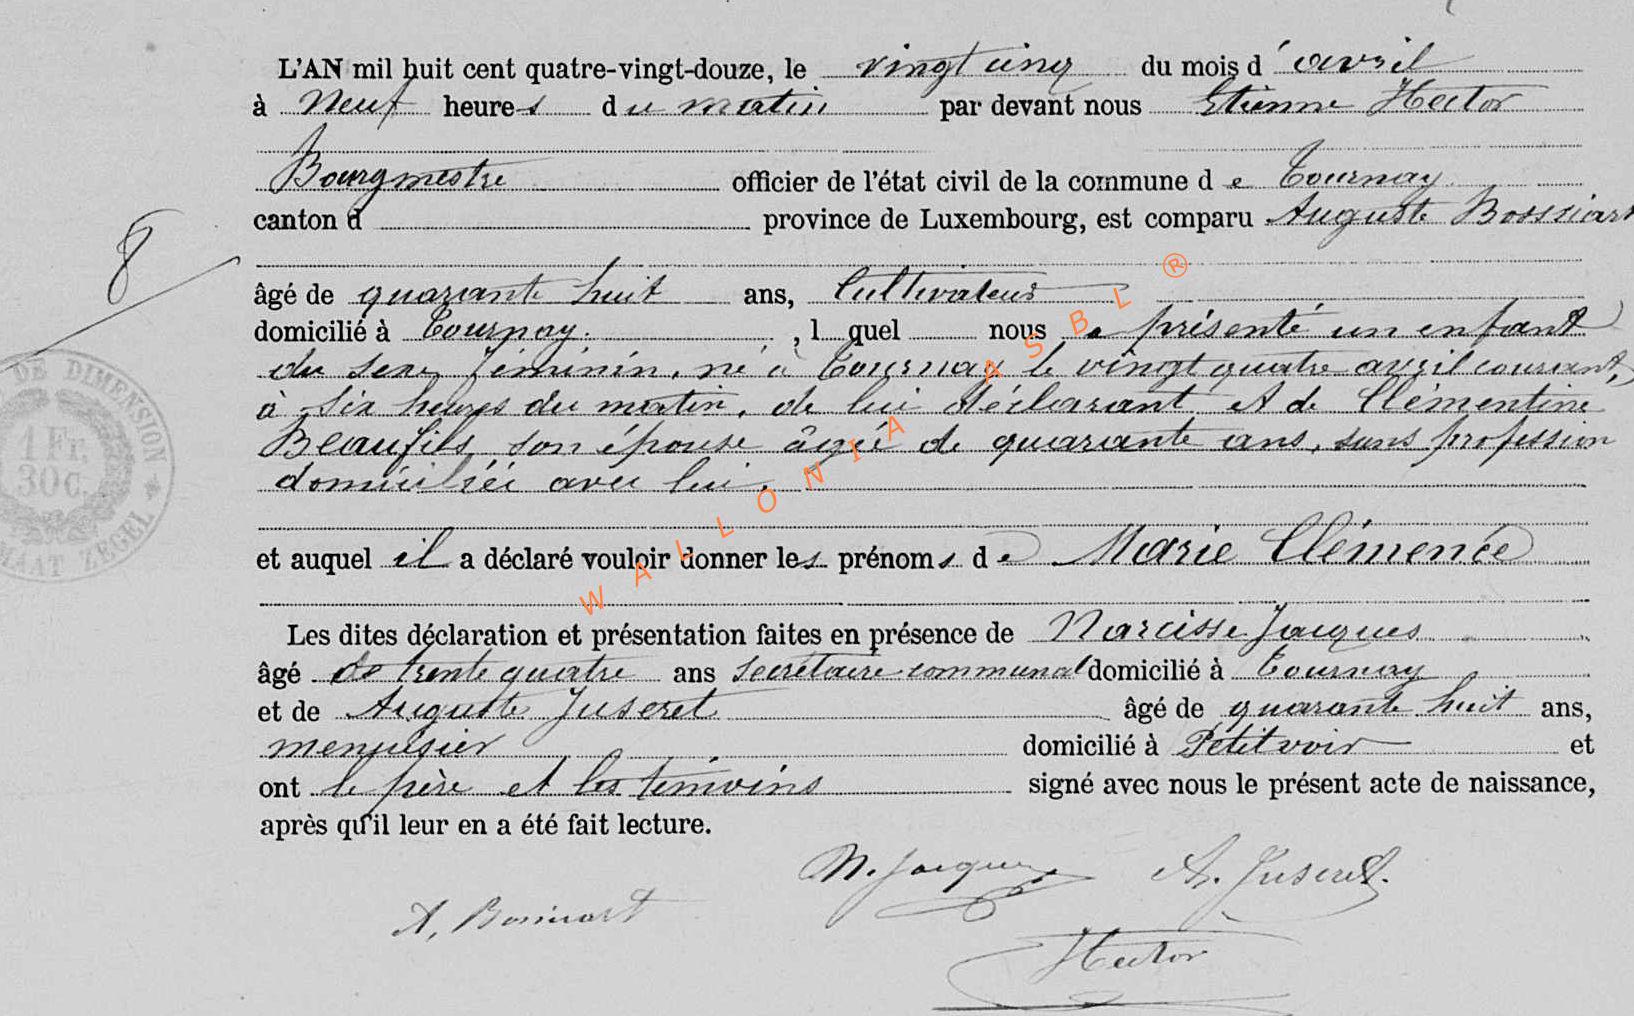 L'AN mil huit cent quatre-vingt-douze, le vingt cinq du mois d'avril
à Neuf heures du matin par devant nous Etienne Hector
Bourgmestre officier de l'état civil de la commune de Tournay
canton d province de Luxembourg, est comparu Auguste Bossicart
8
âgé de quarante huit ans, Cultivateur
domicilié à Tournay. , l quel nous a présenté un enfant
du sexe féminin, né à Tournay le vingt quatre avril courant,
à six heures du matin, de lui déclarant et de Clémentine
Beaufils, son épouse âgée de quarante ans, sans profession
domiciliée avec lui.
et auquel il a déclaré vouloir donner les prénoms de Marie Clémence
Les dites déclaration et présentation faites en présence de Narcisse Jacques
âgé de trente quatre ans secrétaire communal domicilié à Tournay
et de Auguste Juseret âgé de quarante huit ans,
menuisier domicilié à Petitvoir et
ont le père et les témoins signé avec nous le présent acte de naissance,
après qu'il leur en a été fait lecture.
N. Jacques A. Juseret.
A. Bossicart
Hector
DE DIMENSION
1 Fr.
30 C.
MAAT ZEGEL
WALLONIA ASBL ®